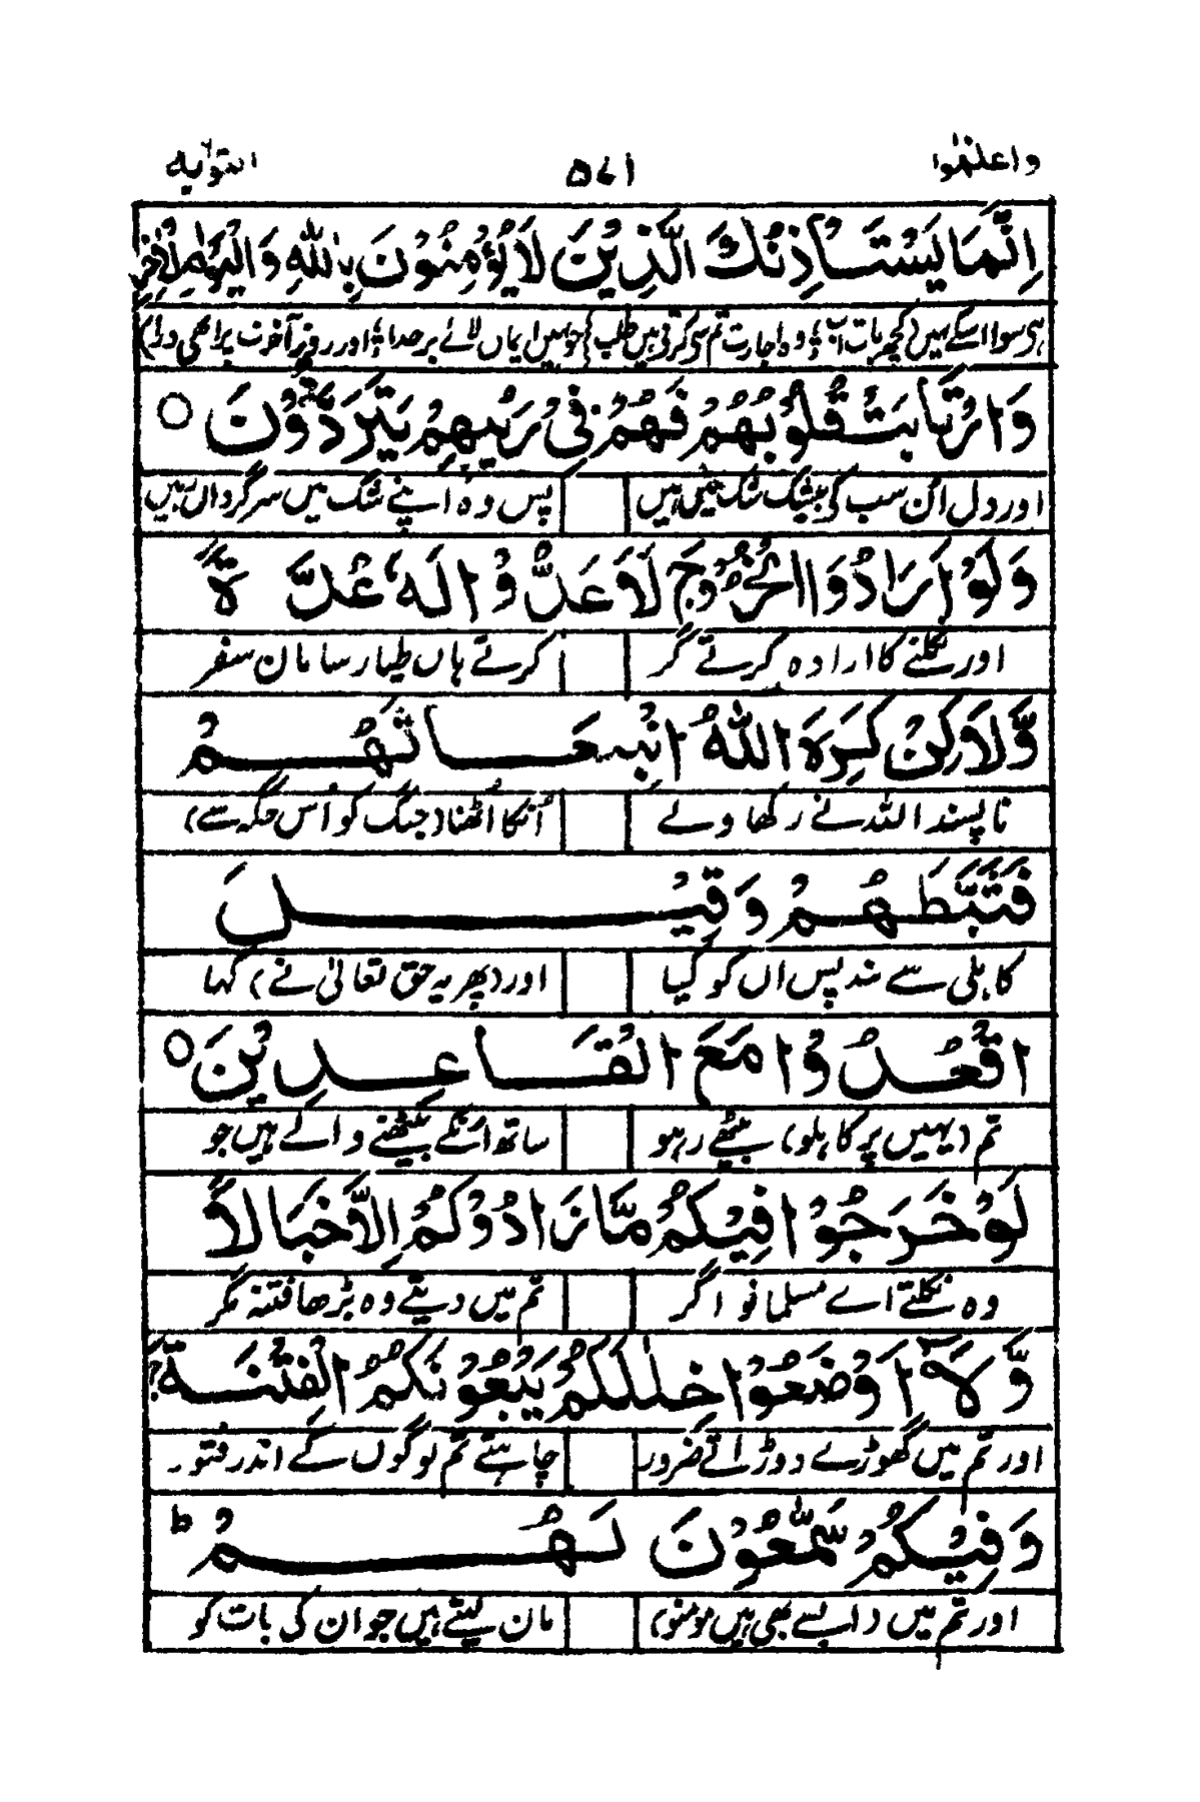 واعلموا ۵۷۱ التوبہ
اِنَّمَا یَسْتَاْذِنُكَ الَّذِیْنَ لَا یُؤْمِنُوْنَ بِاللّٰهِ وَالْیَوْمِ الْاٰخِرِ
ہی سوا اسکے نہیں (کچھ بات اب وہ اجازت تم سے کرتے ہیں طلب جو نہیں ایماں لائے بر خدا اور روز آخرت پر ابھی
وَارْتَابَتْ قُلُوْبُهُمْ فَهُمْ فِیْ رَیْبِهِمْ یَتَرَدَّدُوْنَ ○
اور دل اُن سب کے بیشک شک میں ہیں پس وہ اپنے شک میں سرگرداں ہیں
وَلَوْ اَرَادُوا الْخُرُوْجَ لَاَعَدُّوْا لَهٗ عُدَّةً
اور نکلنے کا ارادہ کرتے گر کرتے ہاں طیار سامان سفر
وَّلٰكِنْ كَرِهَ اللّٰهُ انْۢبِعَاثَهُمْ
ناپسند اللہ نے رکھا ولے اُنکا اُٹھنا (جنگ کو اُس جگہ سے)
فَثَبَّطَهُمْ وَقِیْلَ
کاہلی سے بند پس اں کو کیا اور (پھر یہ حق تعالیٰ نے) کہا
اقْعُدُوْا مَعَ الْقَاعِدِیْنَ ○
تم (یہیں پر کاہلو) بیٹھے رہو ساتھ انکے بیٹھنے والے ہیں جو
لَوْ خَرَجُوْا فِیْكُمْ مَّا زَادُوْكُمْ اِلَّا خَبَالًا
وہ نکلتے اے مسلمانو اگر تم میں دیتے وہ بڑھا فتنہ مگر
وَّلَا۟اَوْضَعُوْا خِلٰلَكُمْ یَبْغُوْنَكُمُ الْفِتْنَةَ ۚ
اور تم میں گھوڑے دوڑاتے ضرور چاہتے تم لوگوں کے اندر فتور۔
وَفِیْكُمْ سَمّٰعُوْنَ لَهُمْ ؕ
اور تم میں (ایسے بھی ہیں مومنو) مان لیتے ہیں جو ان کی بات کو